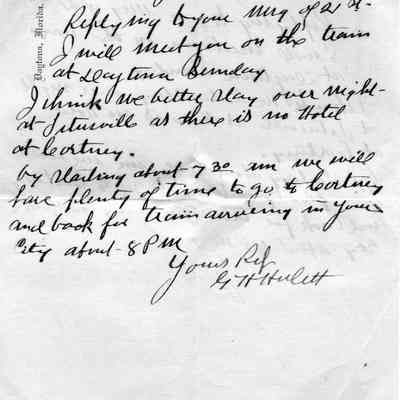 Daytona, Florida.
Replying to your msg of 21st.
I will meet you on the train
at Daytona Sunday
I think we better stay over night
at Titusville as there is no Hotel
at Cortney.
by starting about 7 30 am we will
have plenty of time to go to Cortney
and back for train arriving in your
City about 8 PM
Yours Rsf
G H Hulett